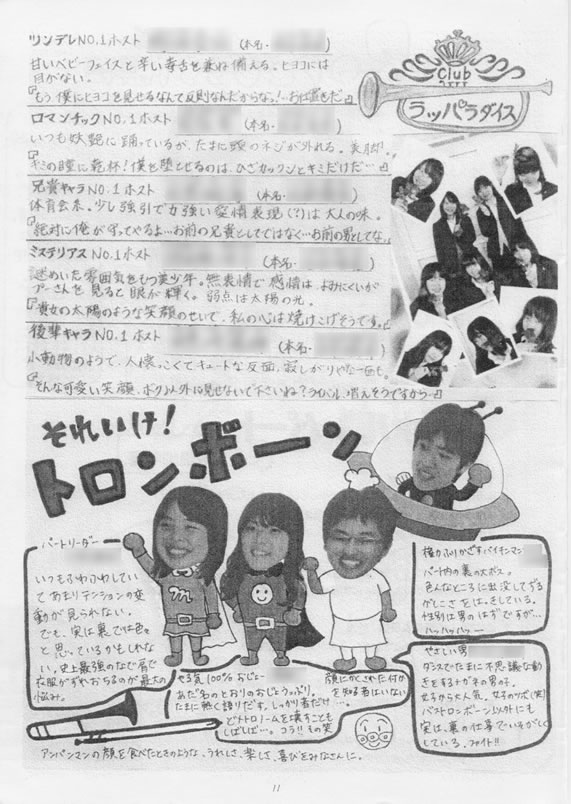 ツンデレNO.1ホスト (本名・ )
甘いベビーフェイスと辛い毒舌を兼ね備える。ヒヨコには
目がない。
『もう僕にヒヨコを見せるなんて反則なんだからなっ!…お仕置きだ』
ロマンチックNO.1ホスト
いつも妖艶に踊っているが、たまに頭のネジが外れる。美脚。
『キミの瞳に乾杯!僕を堕とせるのは、ひざカックンとキミだけだ…。』
兄貴キャラNO.1ホスト (本名・ )
体育会系。少し強引で力強い愛情表現(?)は大人の味。
『絶対に俺が守ってやるよ…お前の兄貴としてではなく…お前の男としてな。』
ミステリアスNO.1ホスト (本名・ )
謎めいた雰囲気をもつ美少年。無表情で感情はよみにくいが
プーさんを見ると眼が輝く。弱点は太陽の光。
『貴女の太陽のような笑顔のせいで、私の心は焼けこげそうです。』
後輩キャラNO.1ホスト (本名・ )
小動物のようで、人懐っこくてキュートな反面、寂しがりやな一面も。
『そんな可愛い笑顔、ボク以外に見せないで下さいね?ライバル、増えそうですから…』
Club
ラッパラダイス
それいけ!
トロンボーン
パートリーダー
いつもふわふわしてい
てあまりテンションの変
動が見られない。
でも、実は裏では色々
と思っているかもしれな
い。史上最強のなで肩で
衣服がずれおちるのが最大の
悩み。
m
やる気100%おじょー
あだ名のとおりのおじょうっぷり。
たまに熱く語りだす。しっかり者だけ
どメトロノームを壊すことも
しばしば…。コラ!!その笑
顔にかくされた何か
を知る者はいない…
権力ふりかざすバイキンマン
パート内の裏の大ボス。
色んなところに出没してずる
がしこさをはっきしている。
性別は男のはずですが…
ハッハッハッー
やさしい男
ダンスでたまに不思議な動
きをするナガネの男の子。
女子から大人気。女子のツボ(笑)
バストロンボーン以外にも
実は、裏の仕事でいそがしく
している。ファイト!!
アンパンマンの顔を食べたときのような、うれしさ、楽しさ、喜びをみなさんに。
11